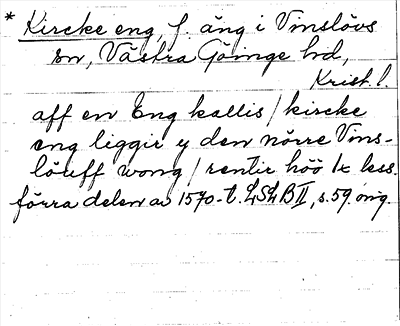 * Kircke eng, f. äng i Vinslövs
sn, Västra Göinge hd,
Krist. l.
aff en Eng kallis / kircke
eng liggir y den nörre Vins-
löuff wong / rentir höö 1x less.
förra delen av 1570-t. LSLB II, s. 59 orig.